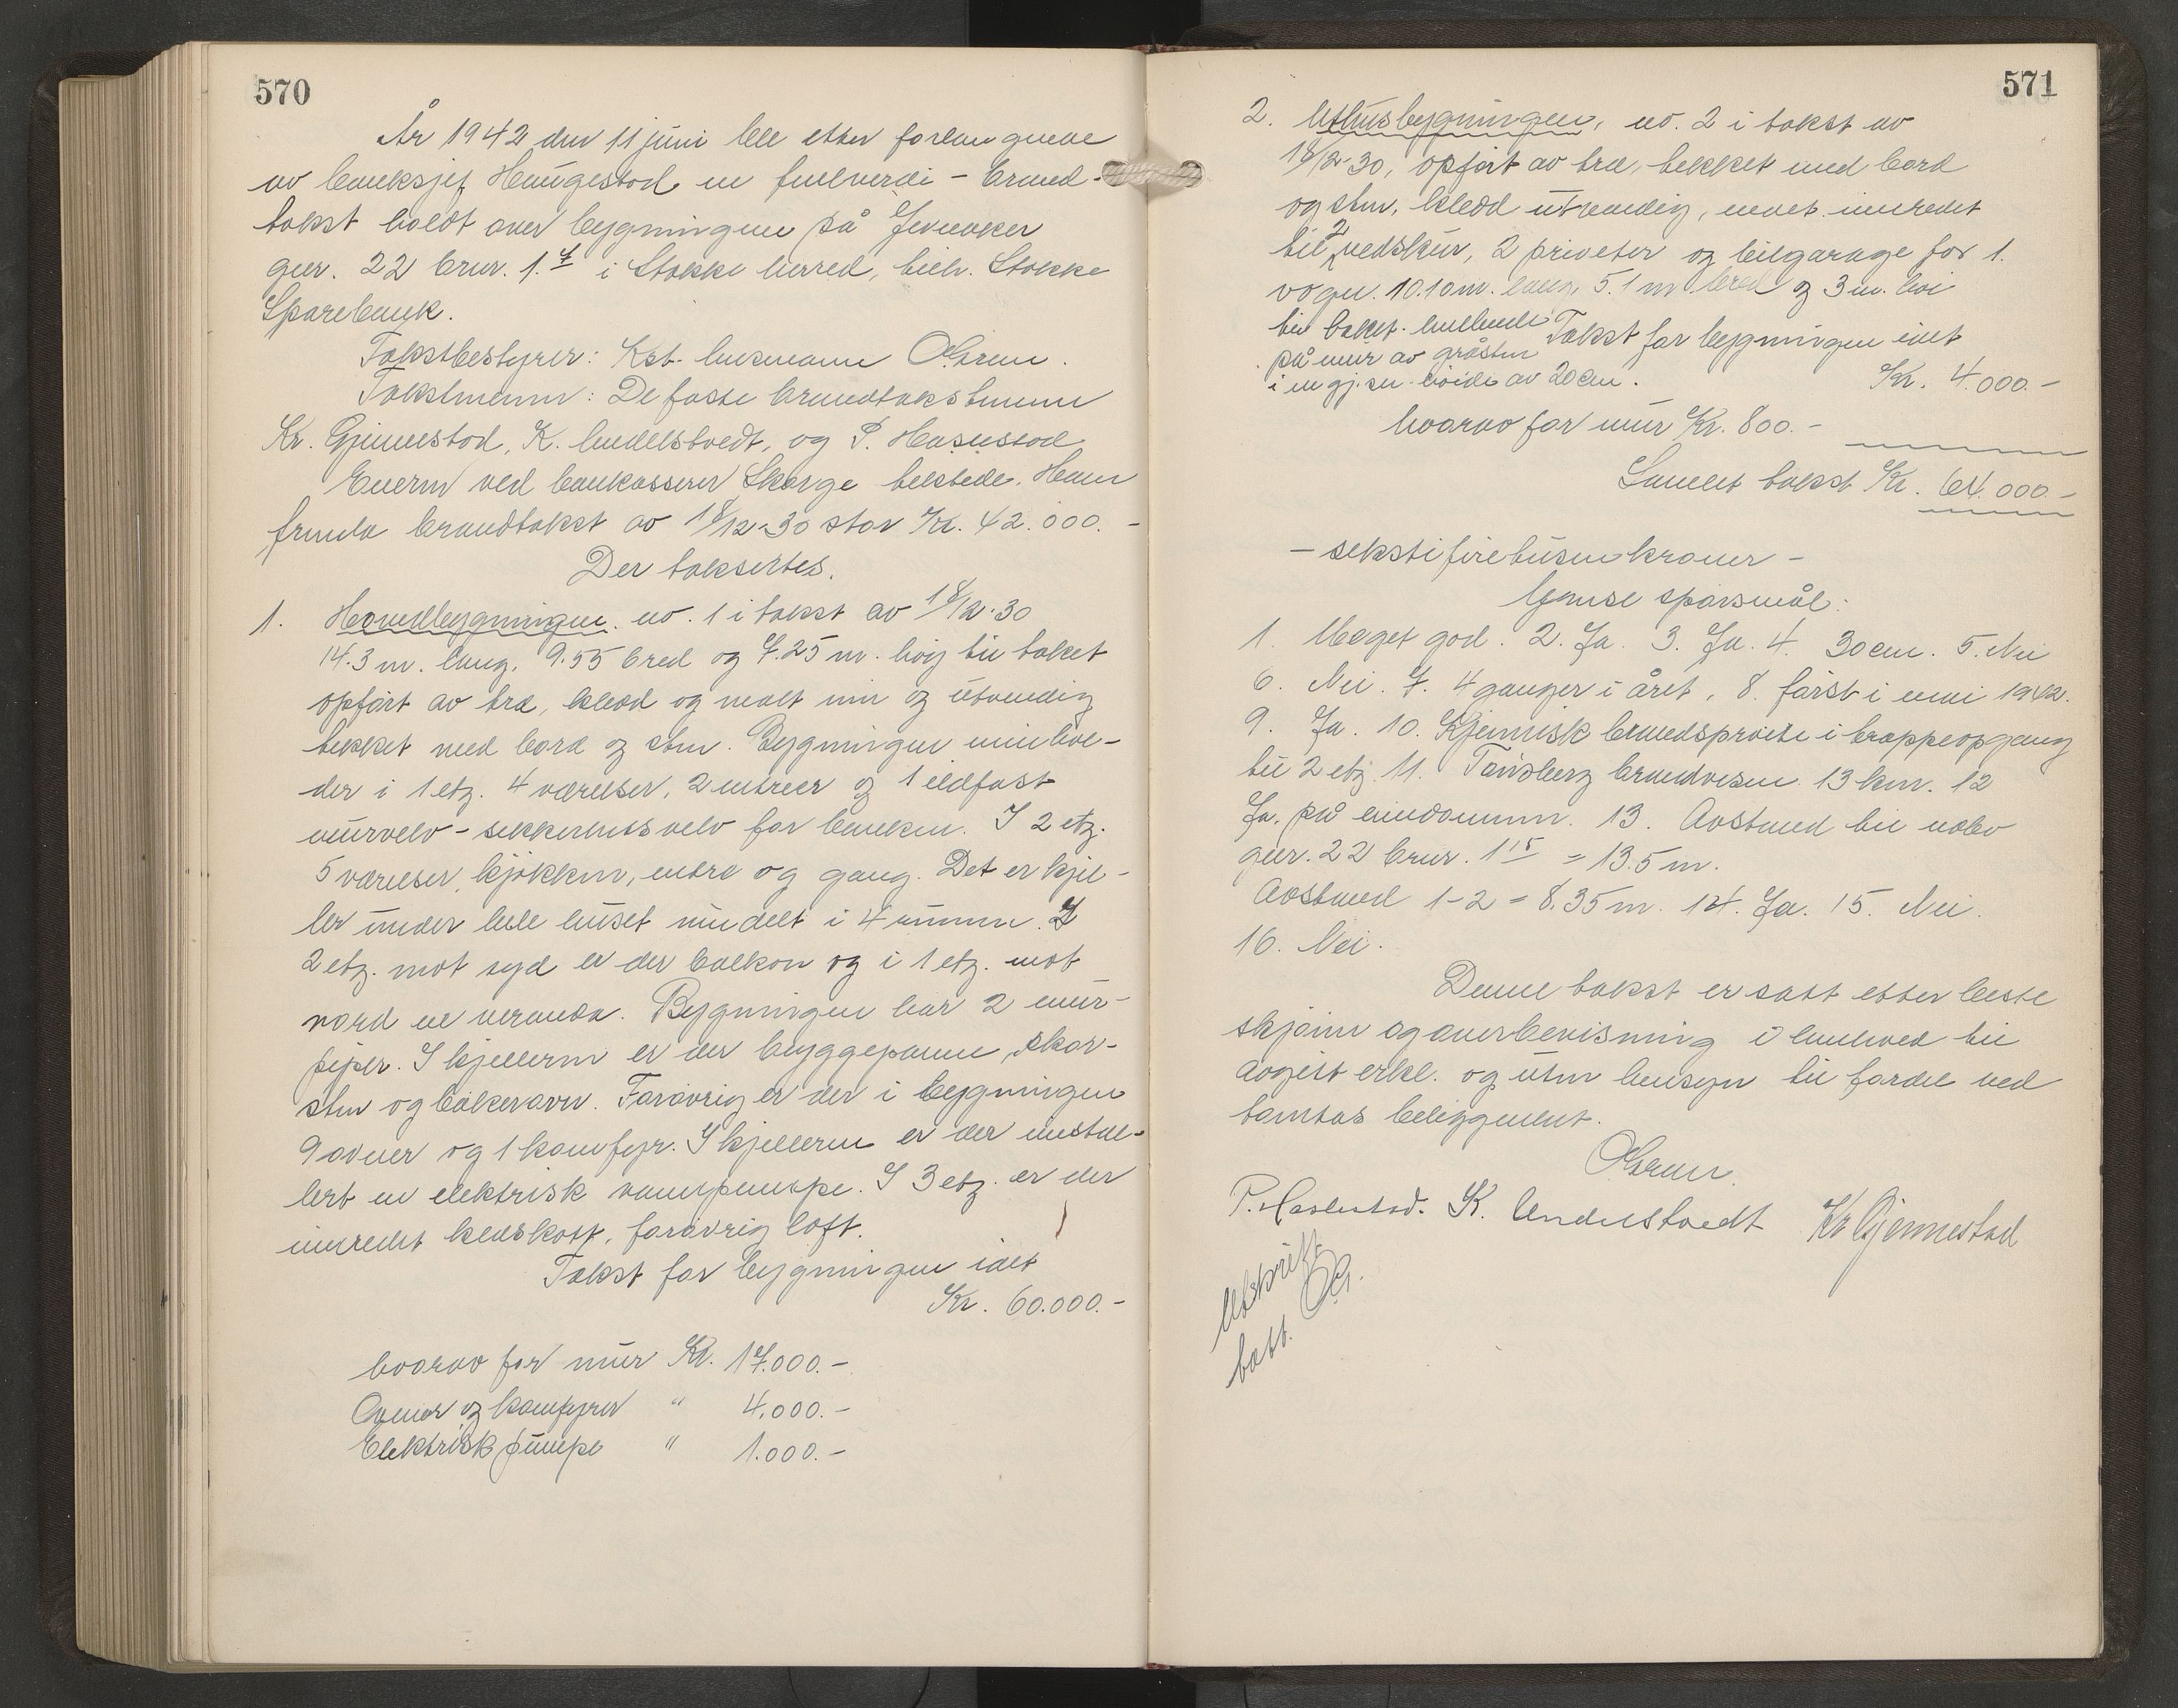 570
År 1942 den 11 juni ble etter forlangnene
av banksjef Haugestad en fullverdi - brand-
takst holdt over bygningene på Jevnaker
gnr. 22 bnr. 1.4 i Stokke herred, tilh. Stokke
Sparebank.
Takstbestyrer: Kst. lensmann
Takstmenn: De faste brandtakstmenn
Kr. Gjennestad, K. Undelstvedt, og P. Hasnstad
Eieren ved bankkasserer Skorge tilstede. Hans
frmla brandtakst av 18/12-30 stor Kr. 42.000.-
Der taksertes.
1. Hovedbygningen. no. 1 i takst av 18/12-30
14.3 m. lang, 9.55 bred og 7.25 m. høi til taket
opført av tre, kledd og malt inn og utvendig
tekket med bord og sten. Bygningen innehol-
der i 1 etg. 4 værelser, 2 entreer og 1 ildfast
murvelv - sikkerhetsvelv for banken. I 2 etg.
5 værelser, kjøkken, entre og gang. Det er kjel-
ler under hele huset inndelt i 4 rummer. I
2 etg. mot syd er der balkon og i 1 etg. mot
nord en veranda. Bygningen har 2 mur-
piper. I kjelleren er der bryggepanne, skor-
sten og bakerovn. Forøvrig er der i bygningen
9 ovner og 1 komfyr. I kjelleren er der instal-
lert en elektrisk vannpumpe. I 3 etg. er der
innredet kledskott, forøvrig loft.
Takst for bygningen ialt
Kr. 60.000.-
hvorav for mur Kr. 17.000.-
Ovner og komfyrer " 4.000.-
Elektrisk pumpe " 1.000.-
571
2. Uthusbygningen, no. 2 i takst av
18/12-30, opført av tre, tekket med bord
og sten, kledd utvendig, innredet
til 2 vedskur, 2 priveter og bilgarage for 1.
vogn. 10.10 m. lang, 5.1 m bred og 3 m. høi
til taket. Takst for bygningen ialt
på mur av gråsten
i en gj.sn. høide av 20 cm. Kr. 4.000.-
hvorav for mur Kr. 800.-
Samlet takst Kr. 64.000.-
- sekstifiretusen kroner -
Ganse spørsmål:
1. Meget god. 2. Ja. 3. Ja. 4. 30 cm. 5. Nei
6. Nei. 7. 4 ganger i året, 8. først i mai 1942.
9. Ja. 10. Kjemisk brandsprøite i trappeopgang
til 2 etg. 11. Tønsberg brandvesen 13 km. 12
Ja. på eiendommen. 13. Avstand til nabo
gnr. 22 bnr. 1 15 = 13.5 m.
Avstand 1-2 = 8.35 m. 14. Ja. 15. Nei.
16. Nei.
Denne takst er satt etter beste
skjønn og overbevisning i henhold til
avgitt erkl. og uten hensyn til fordel ved
tomtas beliggenhet.
P. Haslestad. K. Undelstvedt Kr Gjennestad
Utskrift
tatt.